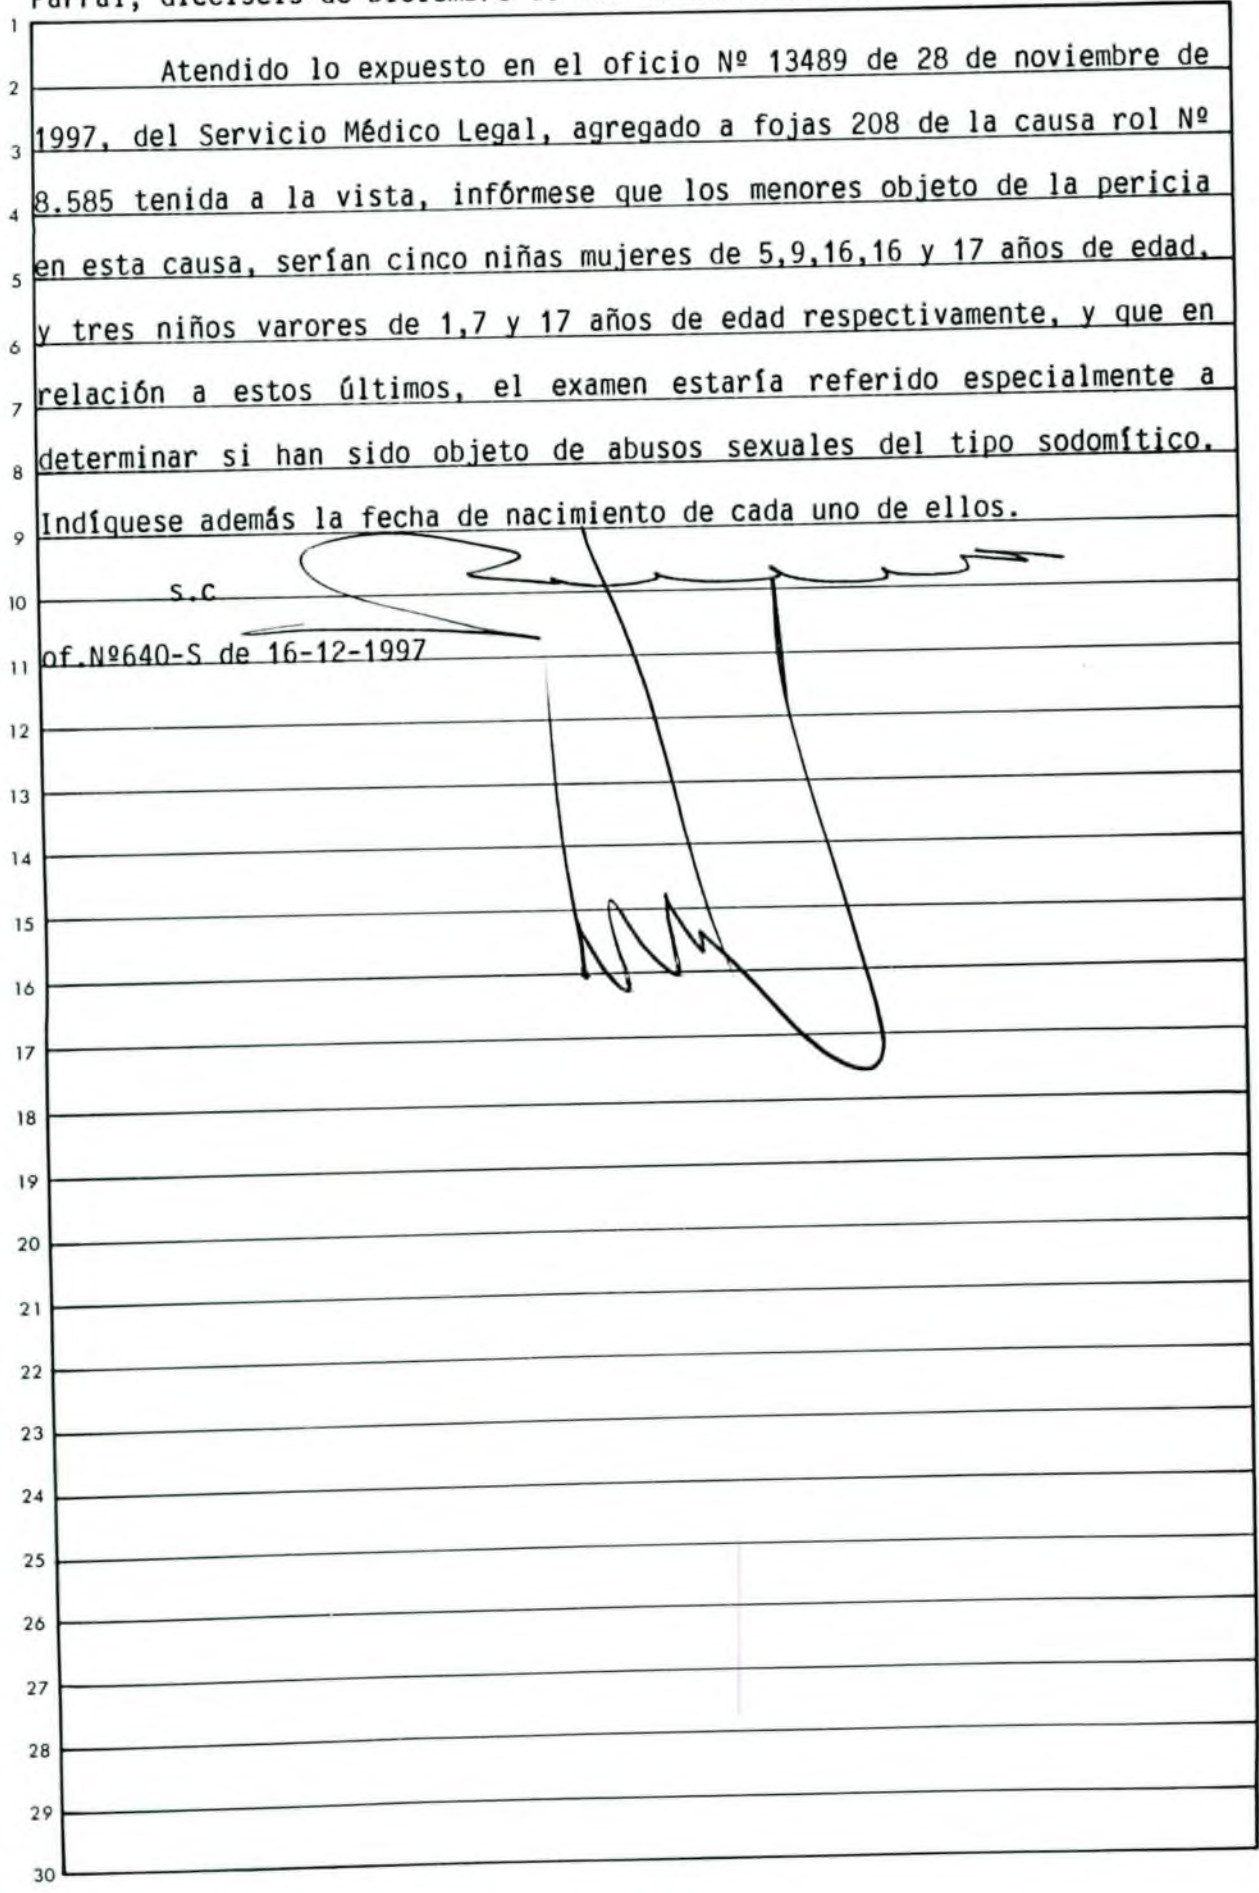 Parral, dieciséis de Diciembre de
1
Atendido lo expuesto en el oficio Nº 13489 de 28 de noviembre de
2
1997, del Servicio Médico Legal, agregado a fojas 208 de la causa rol Nº
3
8.585 tenida a la vista, infórmese que los menores objeto de la pericia
4
en esta causa, serían cinco niñas mujeres de 5,9,16,16 y 17 años de edad,
5
y tres niños varores de 1,7 y 17 años de edad respectivamente, y que en
6
relación a estos últimos, el examen estaría referido especialmente a
7
determinar si han sido objeto de abusos sexuales del tipo sodomítico.
8
Indíquese además la fecha de nacimiento de cada uno de ellos.
9
s.c
10
of.Nº640-S de 16-12-1997
11
12
13
14
15
16
17
18
19
20
21
22
23
24
25
26
27
28
29
30